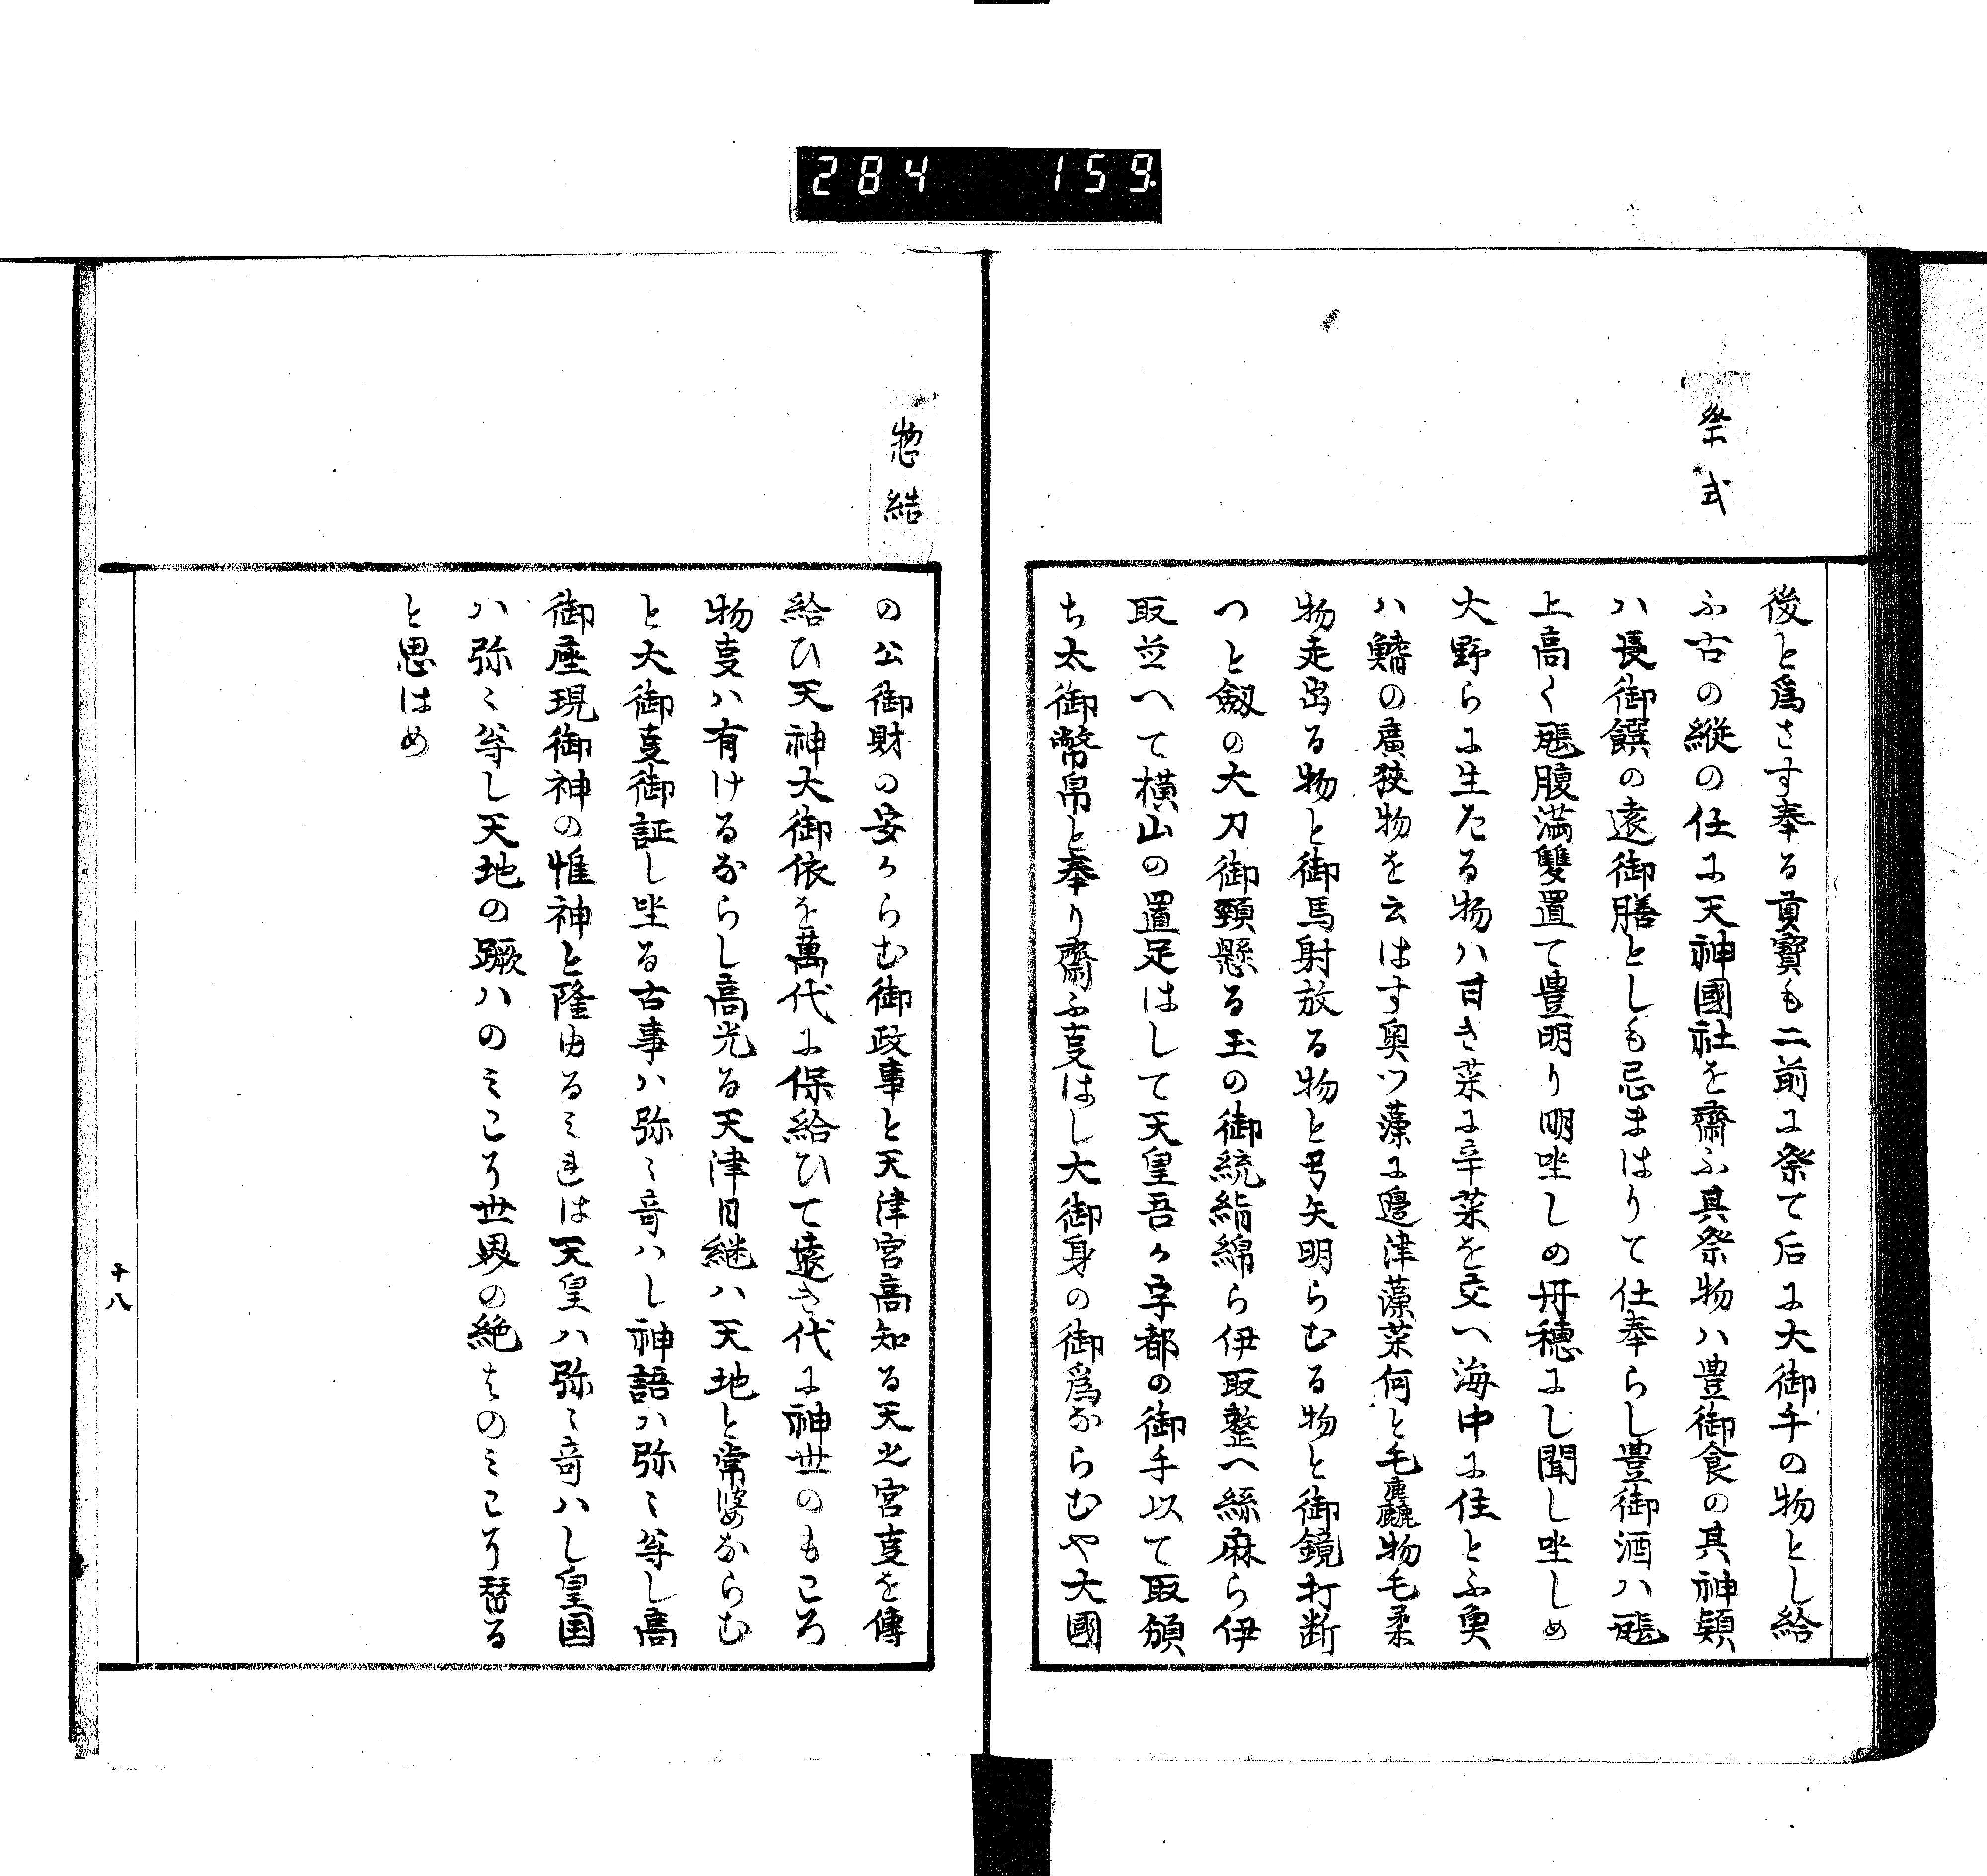 284 159
祭式
後と爲さす奉る貢寳も二前に祭て后に大御手の物とし給
ふ古の縦の任に天神國社を齋ふ其祭物ハ豊御食の其神穎
ハ長御饌の遠御膳としも忌まはりて仕奉らし豊御酒ハ𤭖
上高く𤭖腹満雙置て豊明り明坐しめ丹穂にし聞し坐しめ
大野らに生たる物ハ甘き菜に辛菜を交へ海中に住とふ奧
ハ鰭の廣狭物を云はす奥ツ藻に邊津藻菜何と毛麤物毛柔
物走出る物と御馬射放る物と弓矢明らむる物と御鏡打断
つと劔の大刀御頸懸る玉の御統絹綿ら伊取整へ絲麻ら伊
取並へて横山の置足はして天皇吾か宇都の御手以て取頒
ち太御幣帛と奉り齋ふ㕝はし大御身の御爲ならむや大國
惣結
の公御財の安からむ御政事と天津宮高知る天之宮㕝を傳
給ひ天神大御依を萬代に保給ひて遠き代に神世のもころ
物㕝ハ有けるならし高光る天津日継ハ天地と常婆ならむ
と大御㕝御証し坐る古事ハ弥〻奇ハし神語ハ弥〻等し高
御座現御神の惟神と隆由るみれは天皇ハ弥〻奇ハし皇国
ハ弥〻等し天地の蹶ハのみこそ世界の絶ものみこそ替る
と思はめ
十八